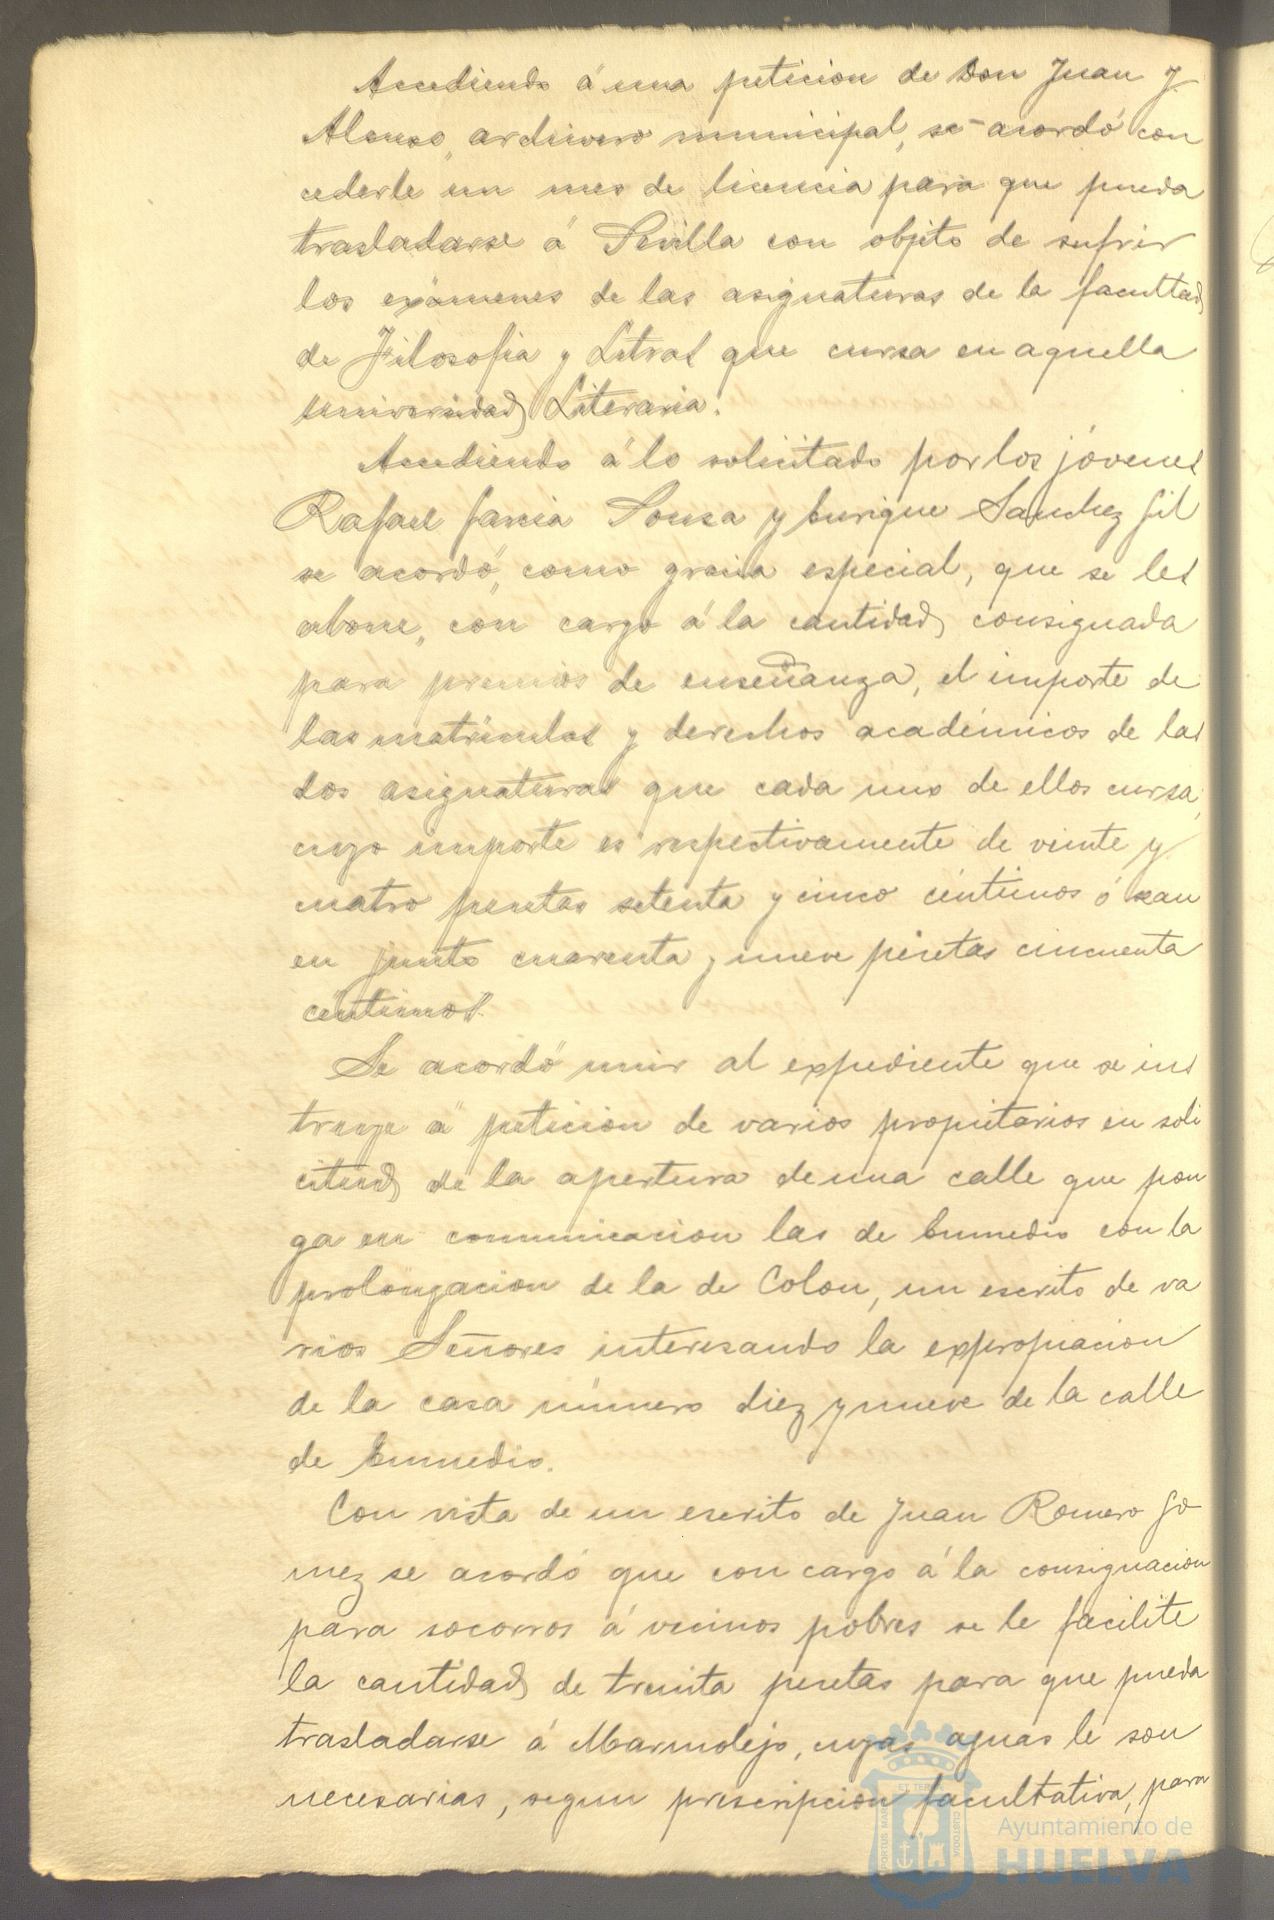 Accediendo á una peticion de Don Juan J.
Alonso, archivero municipal, se acordó con
cederle un mes de licencia para que pueda
trasladarse á Sevilla con objeto de sufrir
los exámenes de las asignaturas de la facultad
de Filosofia y Letras que cursa en aquella
universidad Literaria.
Accediendo á lo solicitado por los jóvenes
Rafael Garcia Sousa y Enrique Sanchez Gil
se acordó, como gracia especial, que se les
abone, con cargo á la cantidad consignada
para premios de enseñanza, el importe de
las matrículas y derechos académicos de las
dos asignaturas que cada uno de ellos cursa,
cuyo importe es respectivamente de veinte y
cuatro pesetas setenta y cinco céntimos ó sean
en junto cuarenta y nueve pesetas cincuenta
céntimos.
Se acordó unir al expediente que se ins
truye á peticion de varios propietarios en soli
citud de la apertura de una calle que pon
ga en comunicacion las de Enmedio con la
prolongacion de la de Colon, un escrito de va
rios Señores interesando la expropiacion
de la casa número diez y nueve de la calle
de Enmedio.
Con vista de un escrito de Juan Romero Go
mez se acordó que con cargo á la consignacion
para socorros á vecinos pobres se le facilite
la cantidad de treinta pesetas para que pueda
trasladarse á Marmolejo, cuyas aguas le son
necesarias, segun prescripcion facultativa, para
Ayuntamiento de
HUELVA